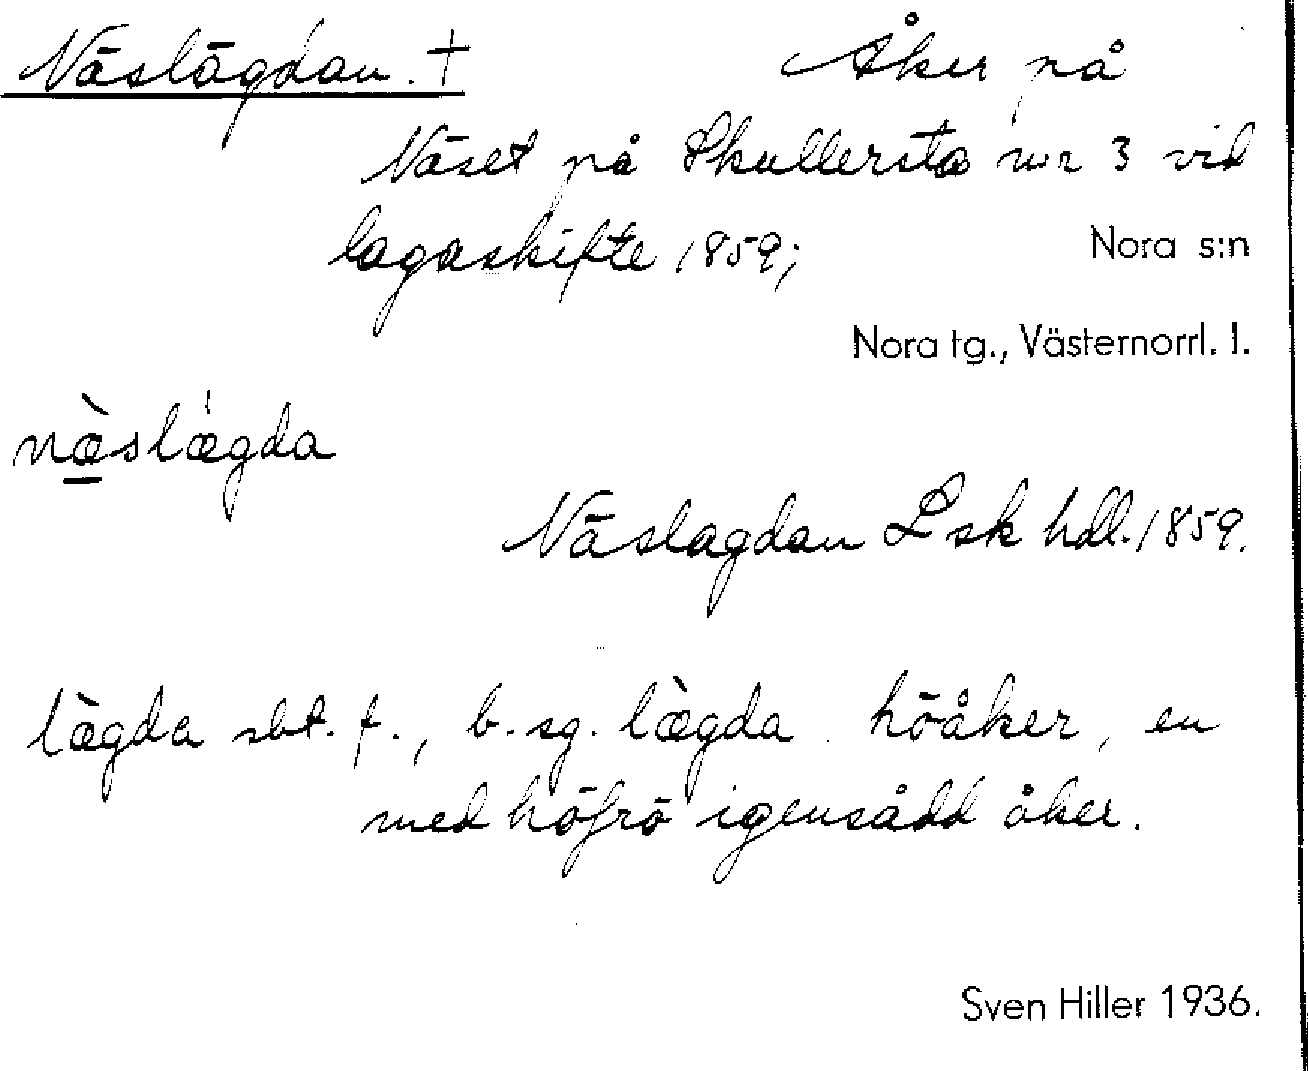 Näslägdan. † Åker på
Näset på Skullersta nr 3 vid
lagaskifte 1859; Nora s:n
Nora tg., Västernorrl. l.
næ̀slæ̍gda
Näslagdan Lsk hdl. 1859.
læ̀gda sbt. f., b. sg. læ̀gda höåker, en
med höfrö igensådd åker.
Sven Hiller 1936.